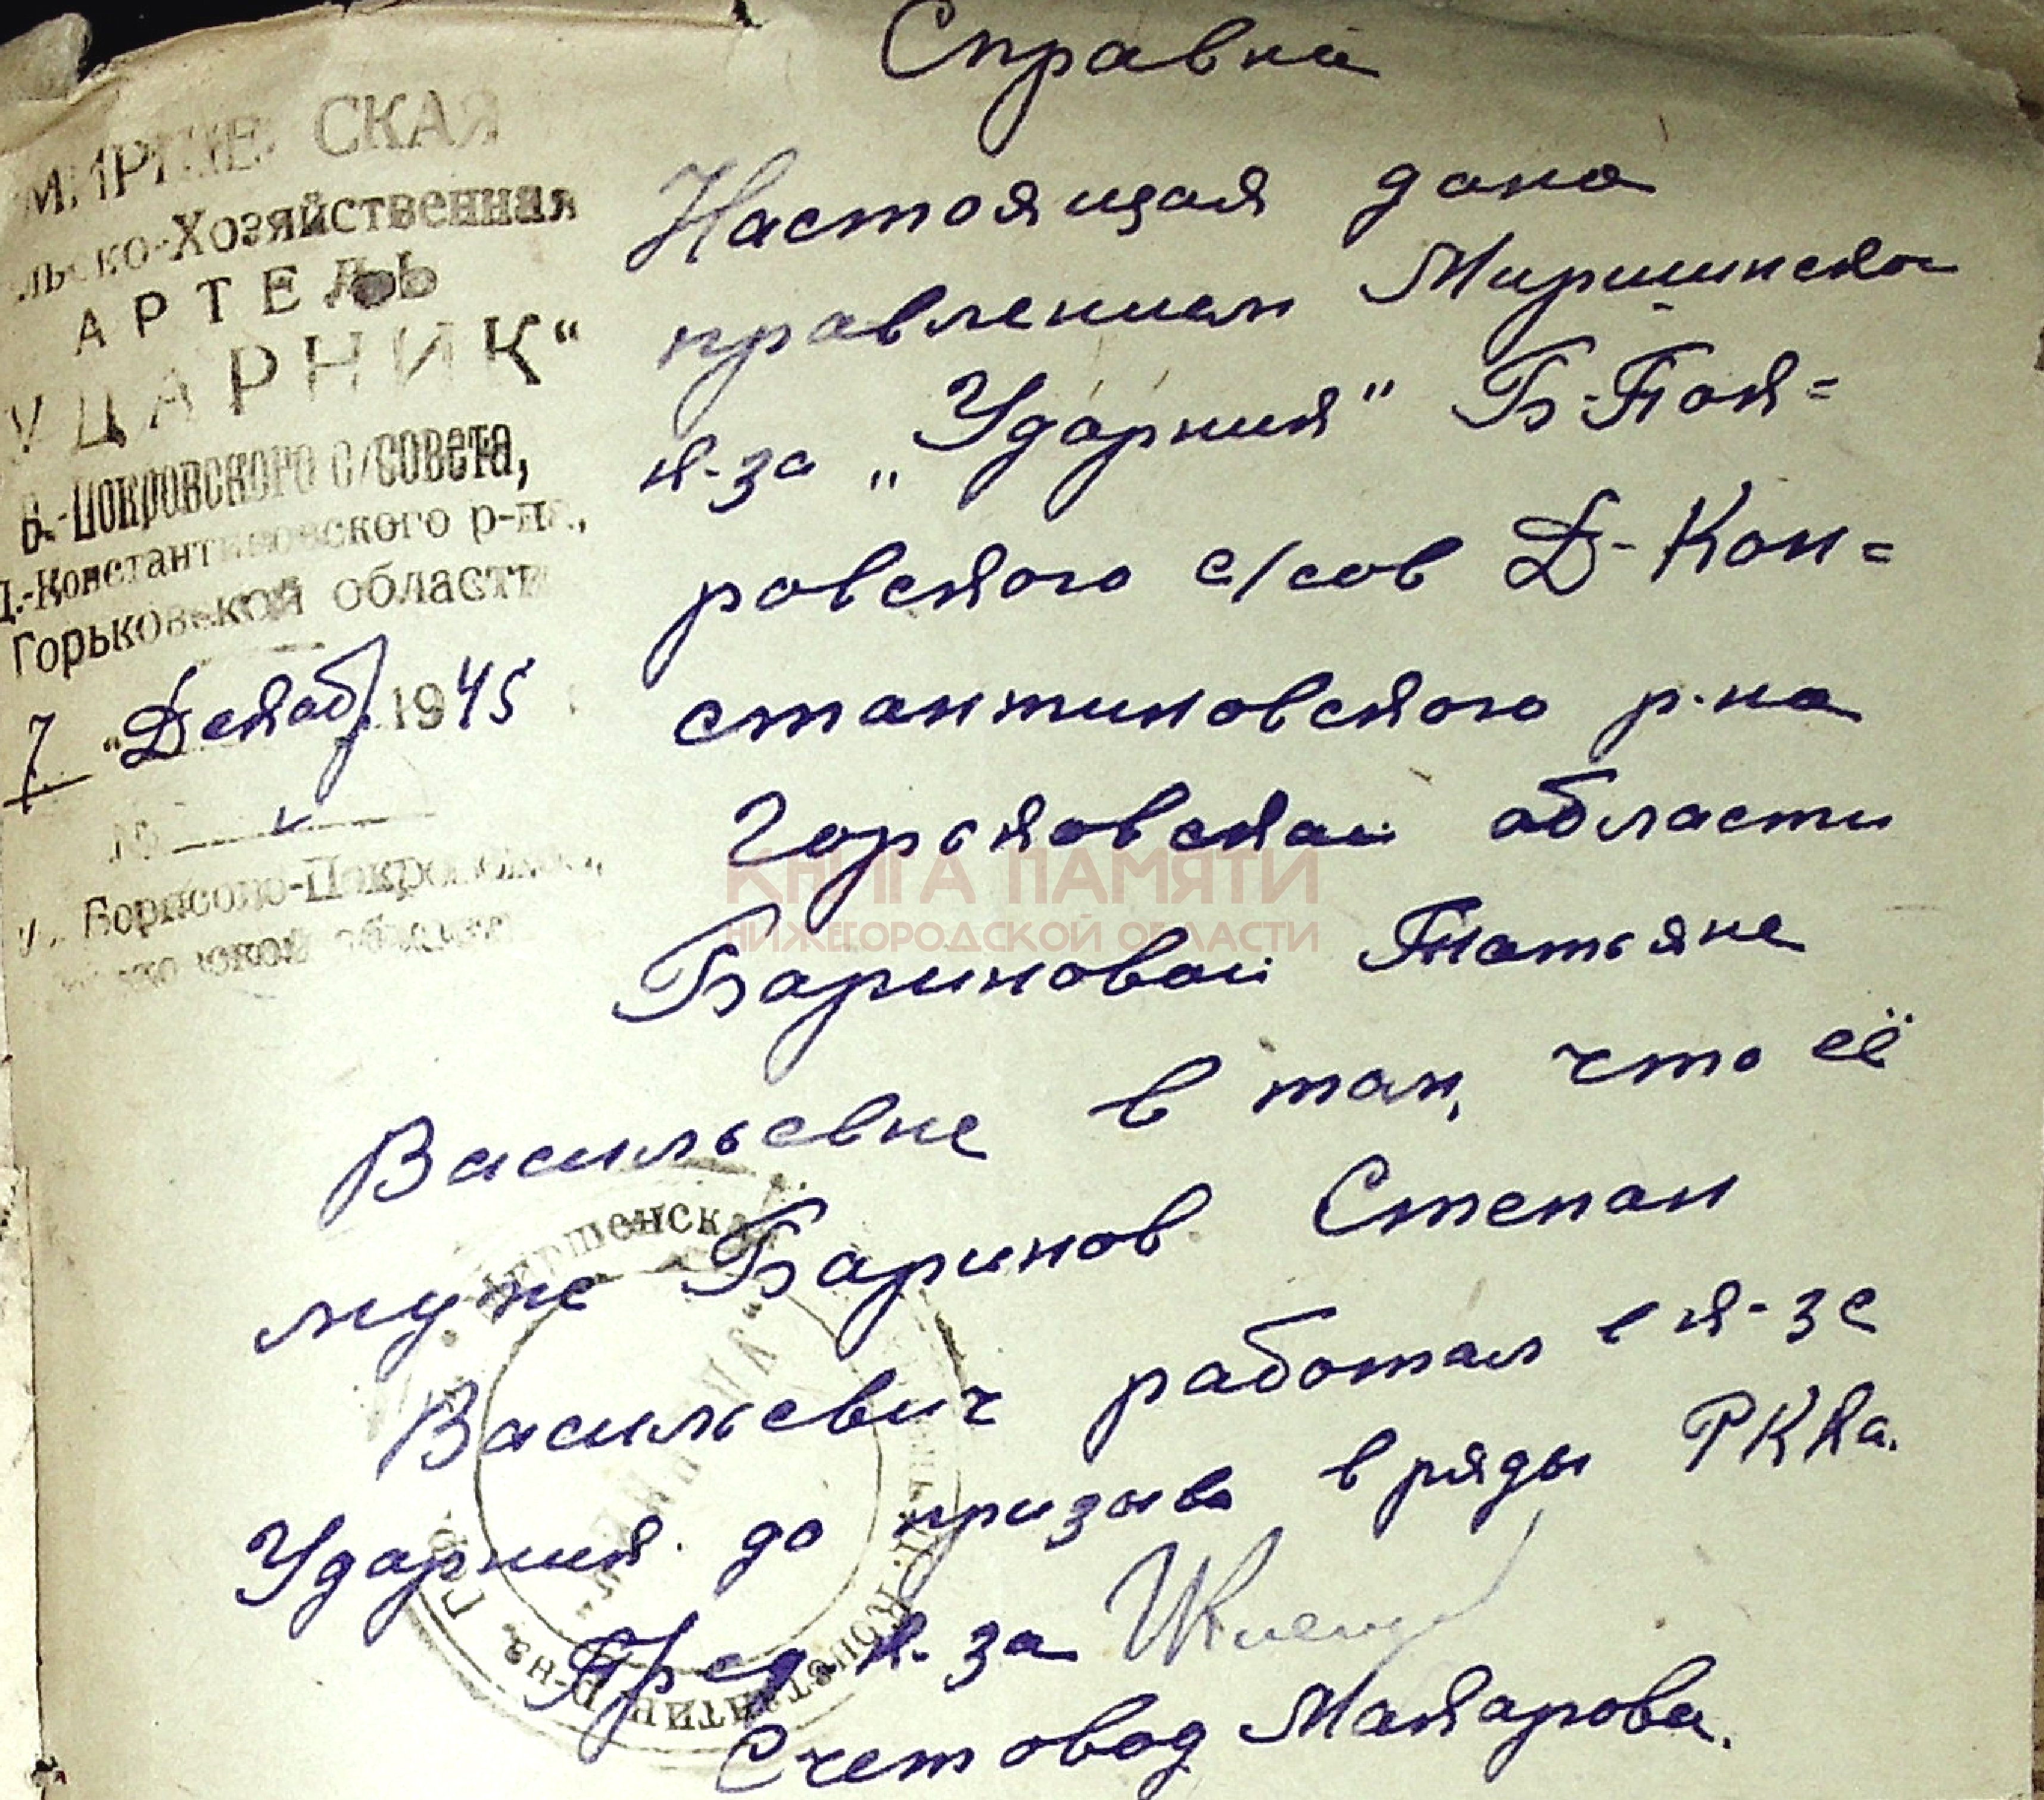 Справка
СКАЯ
льско-Хозяйственная
АРТЕЛЬ
УДАРНИК“
Б.-Покровского с/совета,
Д.-Константиновского р-на,
Горьковской области
7 "Декаб. 1945
№
Борисово-Покровское
Настоящая дана
правлением Миршинско
к-за „Ударник" Б-Пок=
ровского с/сов Д-Кон=
стантиновского р-на
Горьковской области
Бариновой Татьяне
Васильевне в том, что её
муже Баринов Степан
Васильевич работал в к-зе
Ударник до призыва в ряды РККа.
Пред. к-за
Счетовод Макарова.
КНИГА ПАМЯТИ
НИЖЕГОРОДСКОЙ ОБЛАСТИ